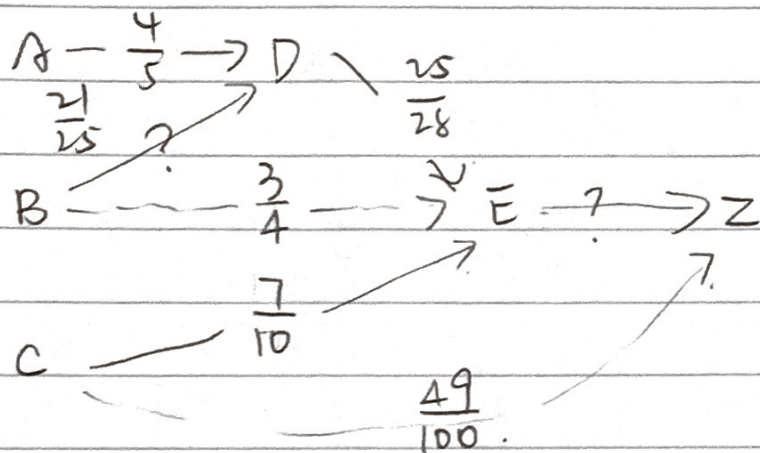 A — 4/5 → D \ 25/28
21/25 ?
B — 3/4 → E — ? → Z
7/10
C
49/100.